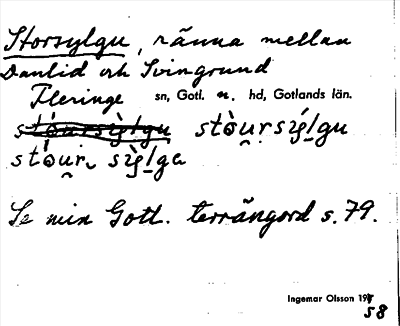 Storsylgu, ränna mellan
Danlid och Svingrund
Fleringe sn, Gotl. n. hd, Gotlands län.
stòu̯ṛsýḷgu
stòu̯r, sỳḷga
Se min Gotl. terrängord s. 79.
Ingemar Olsson 19
58